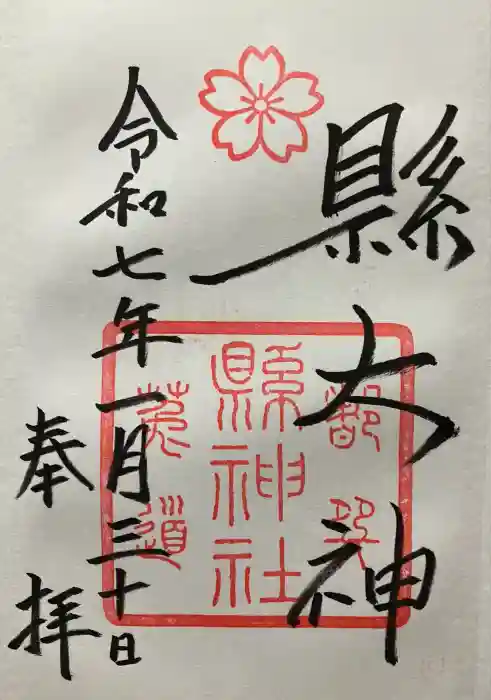 縣大神
都
兎道
縣神社
令和七年一月三十日
奉拝